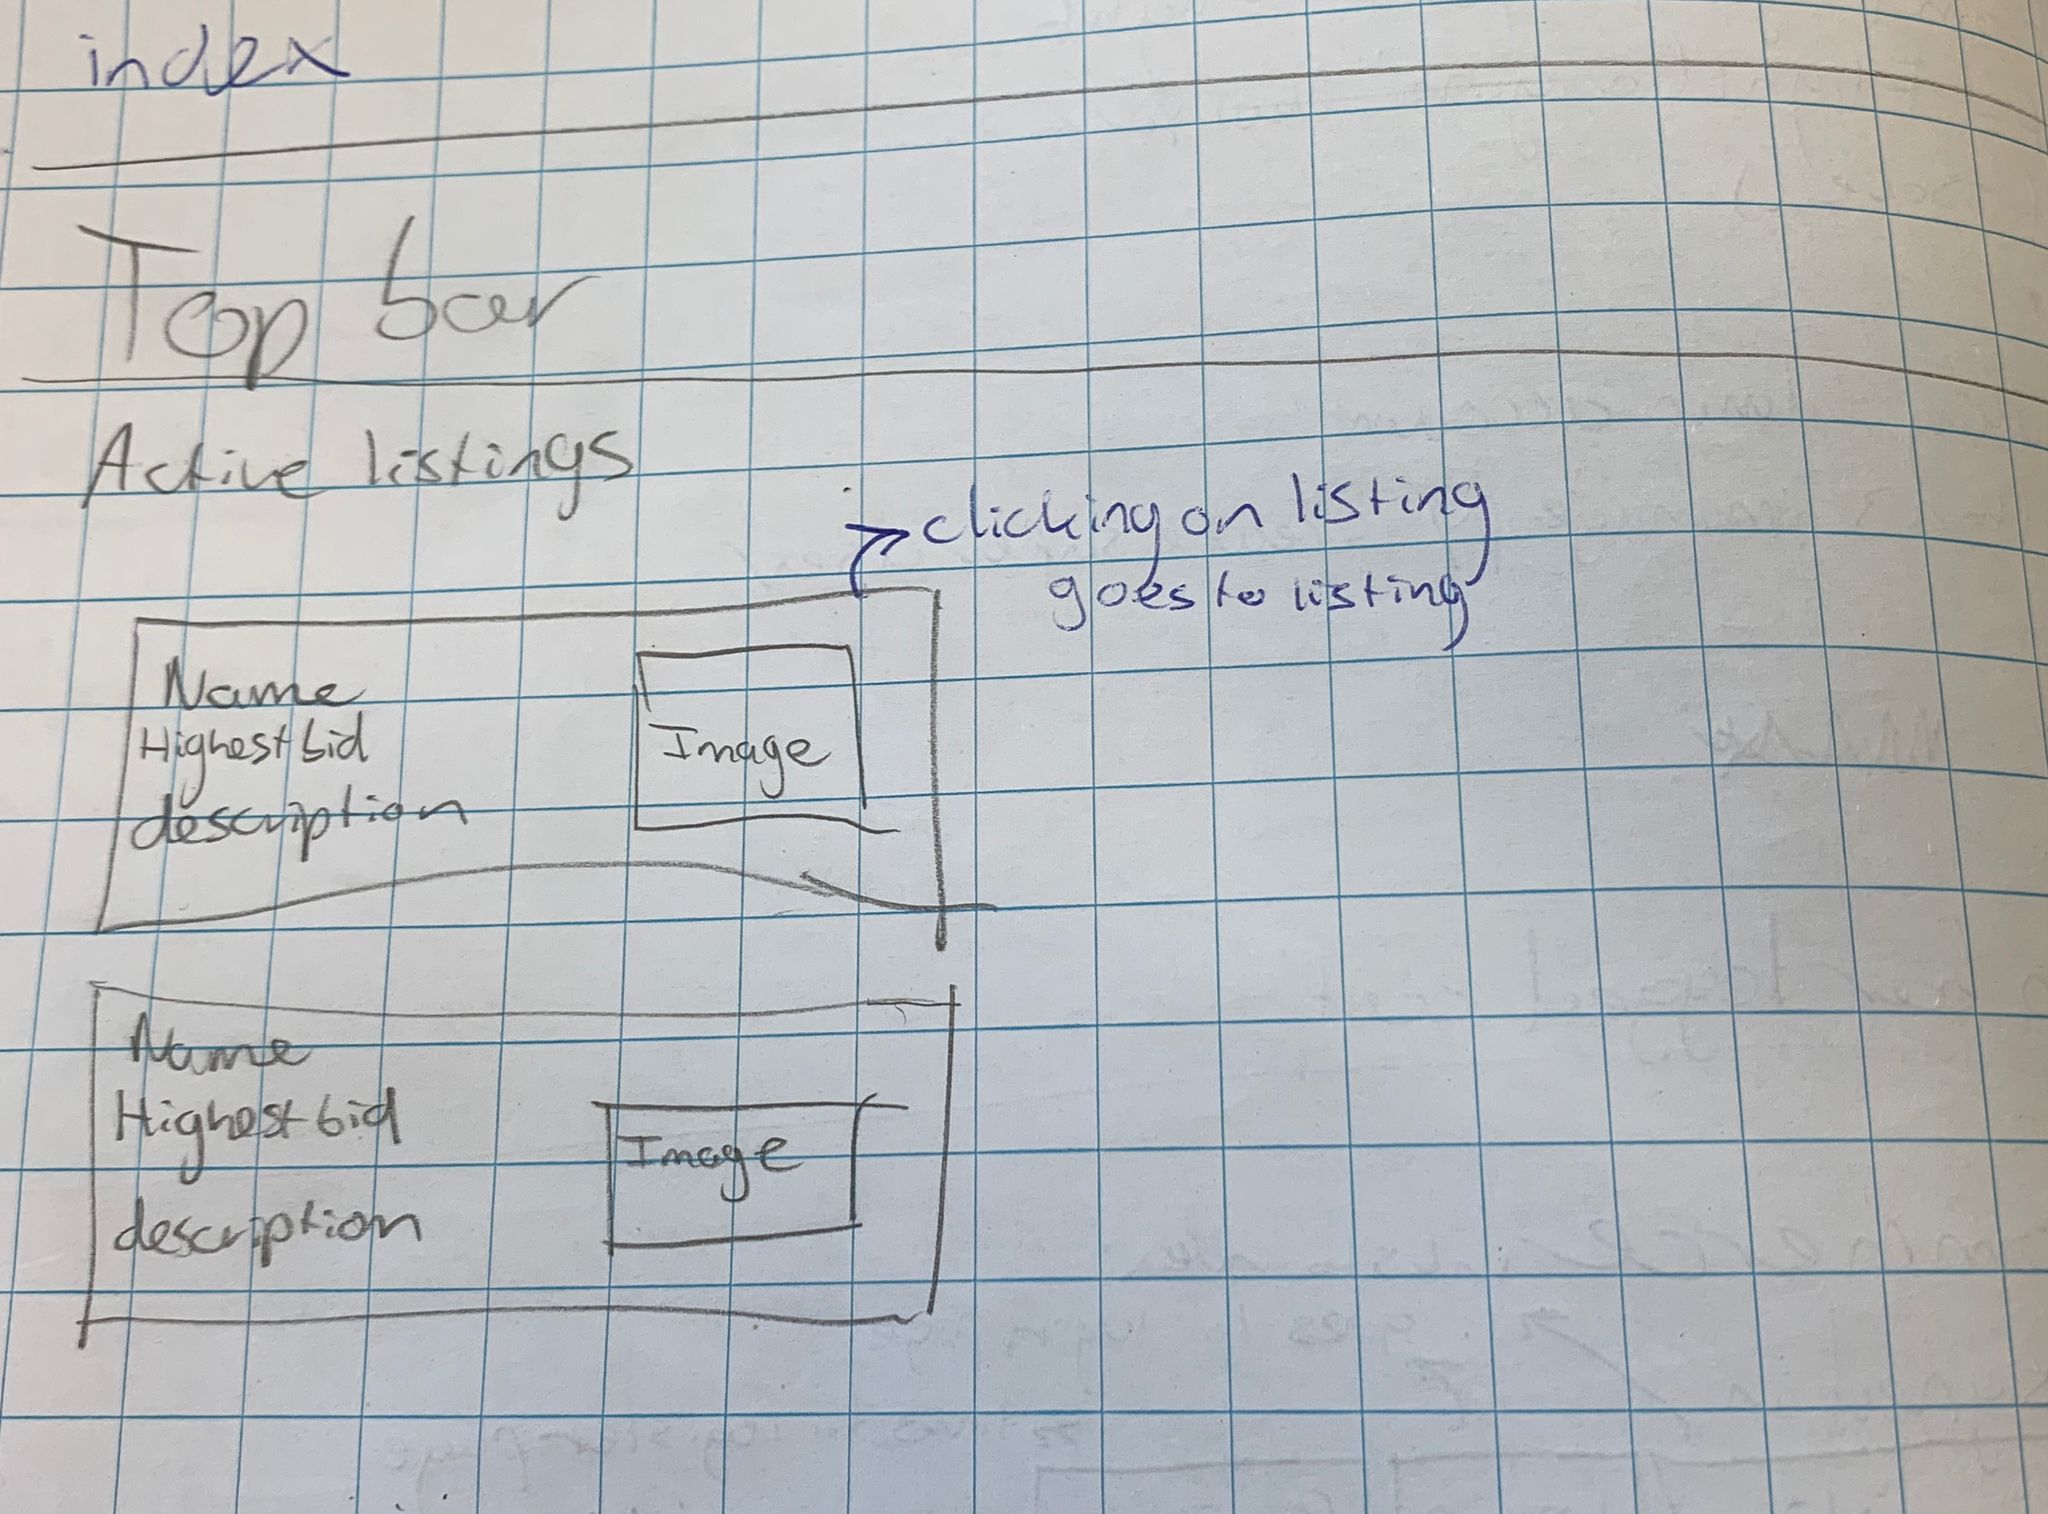 index
Top bar
Active listings
clicking on listing
goes to listing
Name
Highest bid
description
Image
Name
Highest bid
description
Image